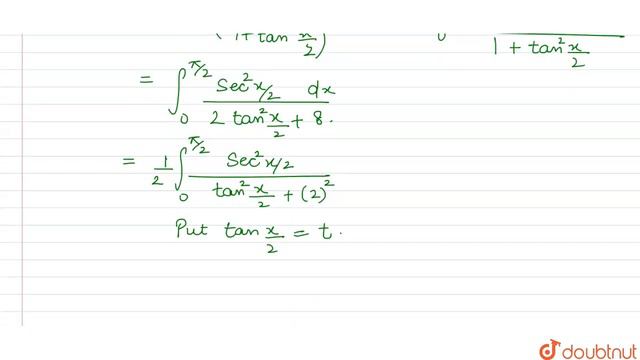 (1+tan x/2)    0    1 + tan² x/2
= ∫₀^π/2 Sec² x/2 dx / 2 tan² x/2 + 8.
= 1/2 ∫₀^π/2 Sec² x/2 / tan² x/2 + (2)²
Put tan x/2 = t.
doubtnut